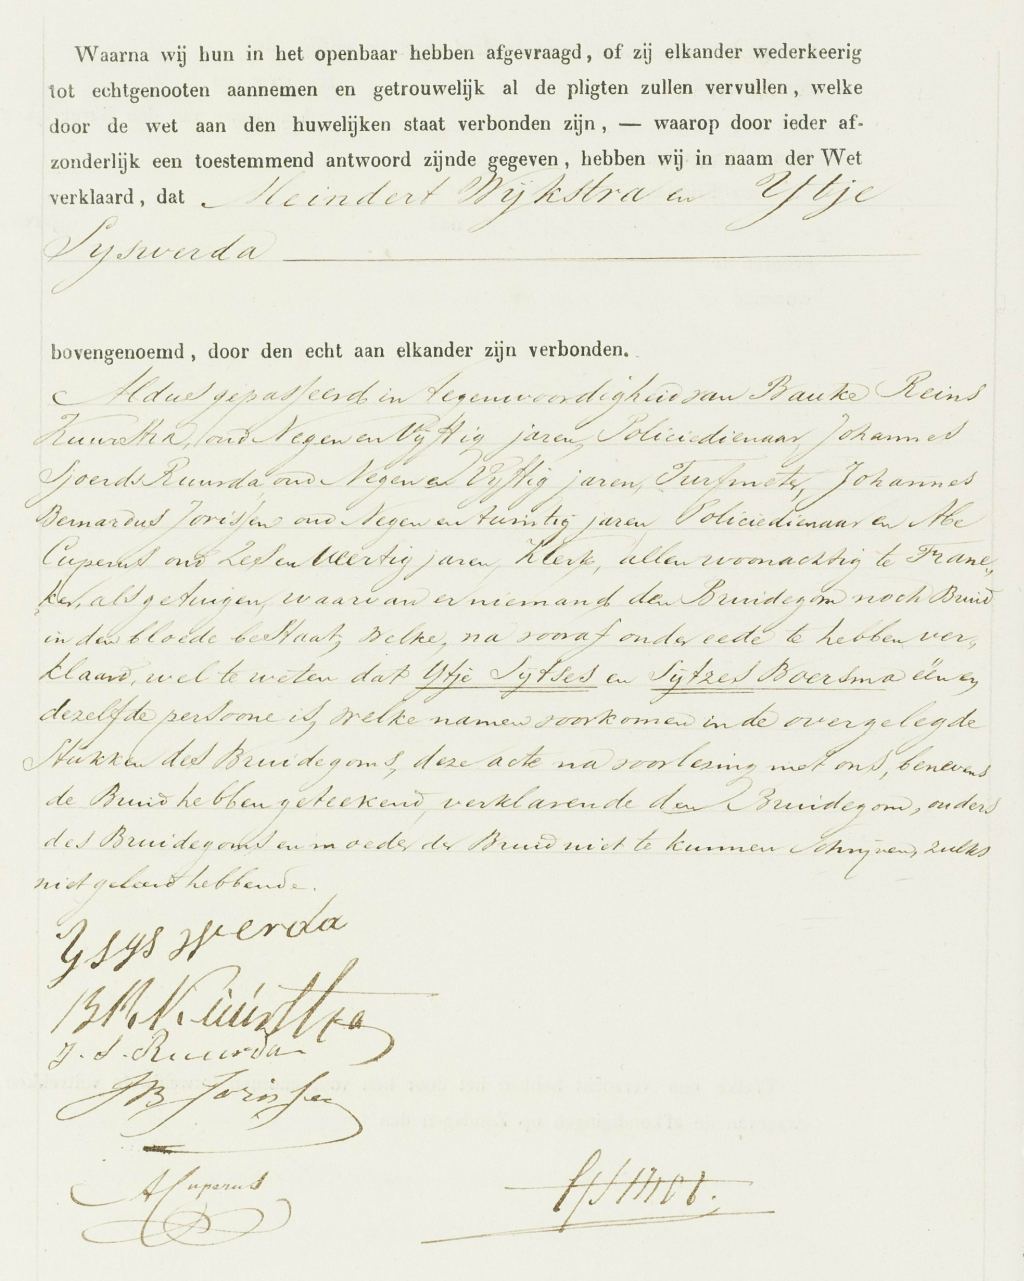 Waarna wij hun in het openbaar hebben afgevraagd, of zij elkander wederkeerig
tot echtgenooten aannemen en getrouwelijk al de pligten zullen vervullen, welke
door de wet aan den huwelijken staat verbonden zijn, — waarop door ieder af-
zonderlijk een toestemmend antwoord zijnde gegeven, hebben wij in naam der Wet
verklaard, dat Meindert Wijkstra en Ytje
Syswerda
bovengenoemd, door den echt aan elkander zijn verbonden.
Aldus gepasseerd in tegenwoordigheid van Bauke Reins
Kuurstra, oud Negen en Vyftig jaren, Policiedienaar, Johannes
Sjoerds Ruurda, oud Negen en Vyftig jaren, Turfmeter, Johannes
Bernardus Jorissen oud Negen en twintig jaren, Policiedienaar en Abe
Cuperus oud Zes en Veertig jaren, Klerk, allen woonachtig te Frane„
ker, als getuigen, waarvan er niemand den Bruidegom noch Bruid
in den bloede bestaat, welke, na vooraf onder eede te hebben ver„
klaard, wel te weten dat Ytje Sytses en Sytzes Boersma één en
dezelfde persoone is, welke namen voorkomen in de overgelegde
Stukken des Bruidegoms, deze acte na voorlezing met ons, benevens
de Bruid hebben geteekend, verklarende den Bruidegom, ouders
des Bruidegoms en moeder der Bruid niet te kunnen Schrijven, zulks
niet geleerd hebbende.
Y Sys werda
B R Kuurstra
J. S. Ruurda
JB Jorissen
A Cuperus